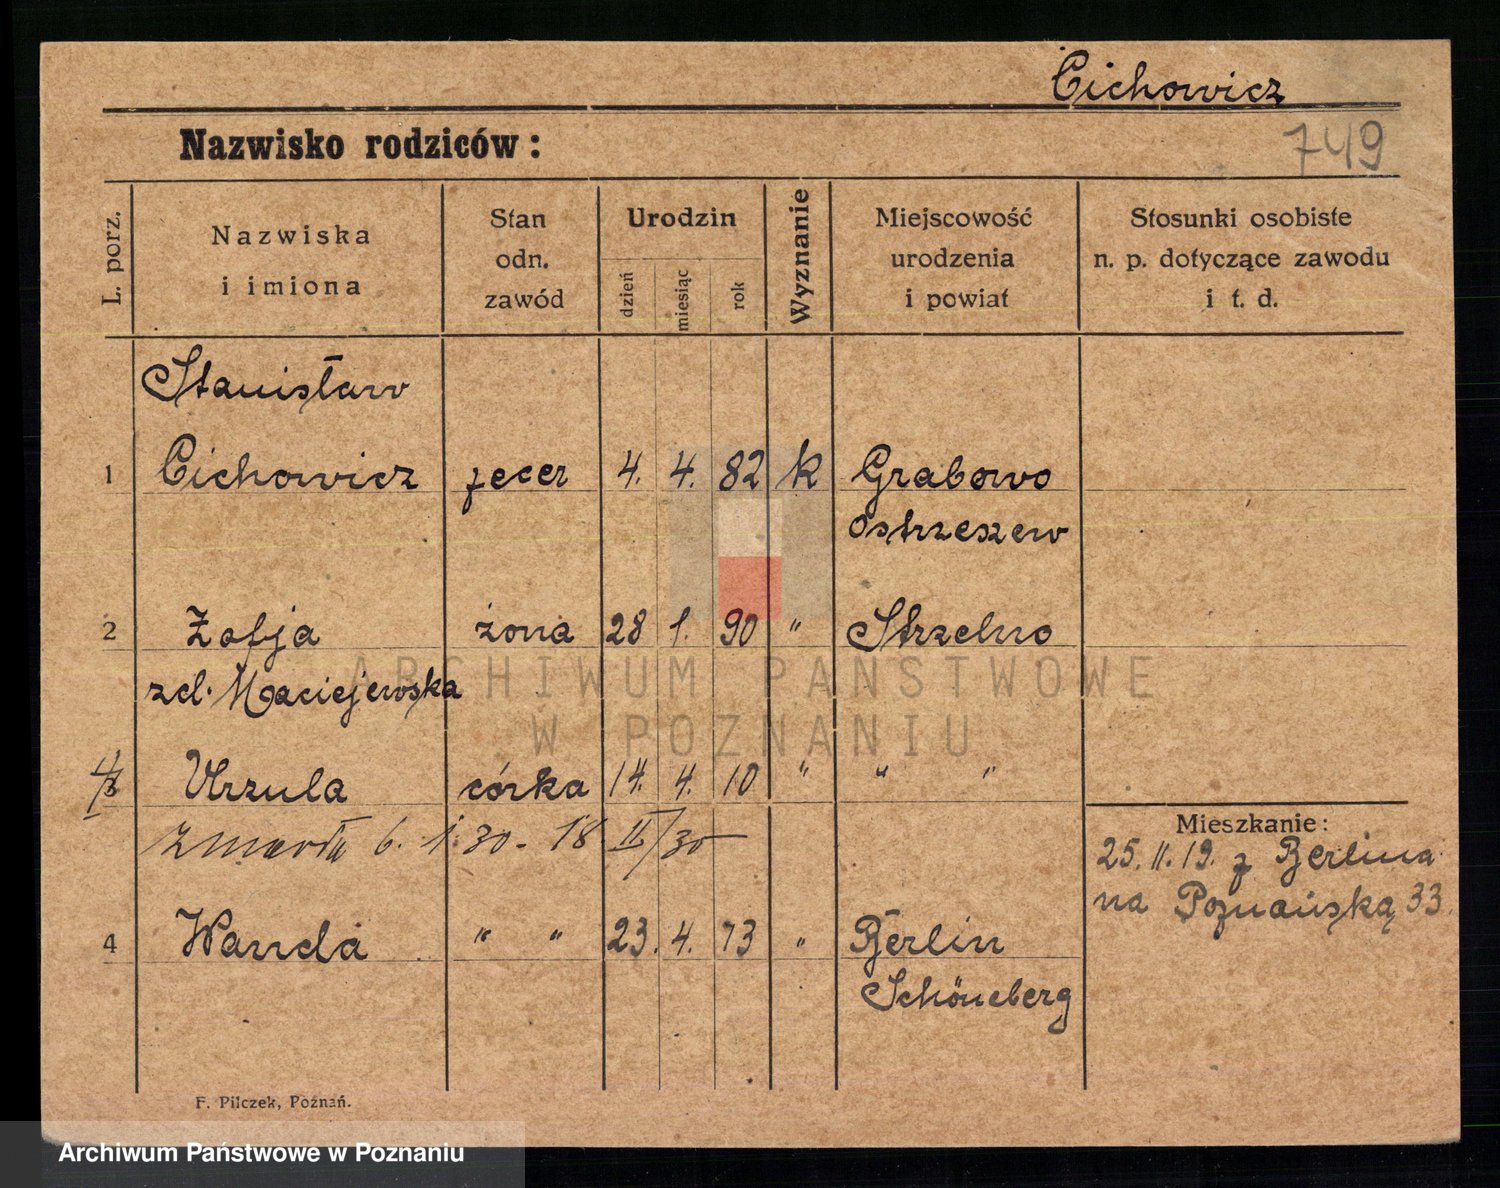 Cichowicz
Nazwisko rodziców:
749
L. porz.
Nazwiska i imiona
Stan odn. zawód
Urodzin
dzień
miesiąc
rok
Wyznanie
Miejscowość urodzenia i powiat
Stosunki osobiste n. p. dotyczące zawodu i t. d.
Stanisław
1 Cichowicz zecer 4. 4. 82 k Grabowo
Ostrzeszew
2 Zofja żona 28 1. 90 " Strzelno
zd. Maciejewska
ARCHIWUM PAŃSTWOWE
W POZNANIU
3 Urzula córka 14. 4. 10 " " "
zmarła 6. 1. 30 - 18 II/30
Mieszkanie:
25. 11. 19. z Berlina
na Poznańską 33.
4 Wanda " " 23. 4. 13 " Berlin
Schöneberg
F. Pilczek, Poznań.
Archiwum Państwowe w Poznaniu